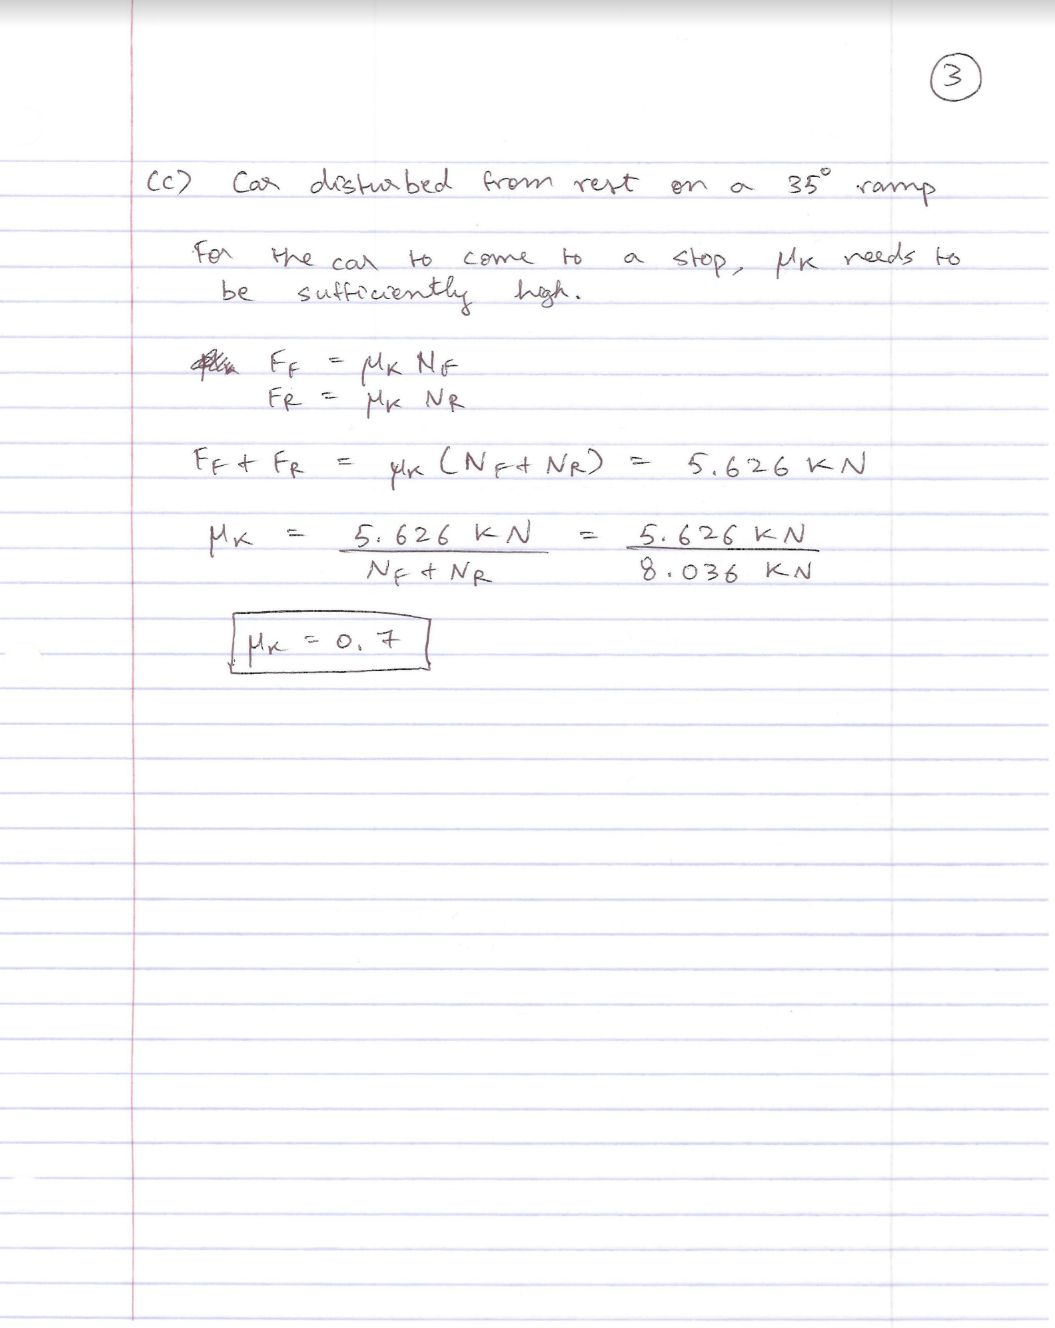 3
(c) Car disturbed from rest on a 35° ramp
For the car to come to a stop, μK needs to
be sufficiently high.
FF = μK NF
FR = μK NR
FF + FR = μK (NF + NR) = 5.626 KN
μK = 5.626 KN / NF + NR = 5.626 KN / 8.036 KN
μK = 0.7